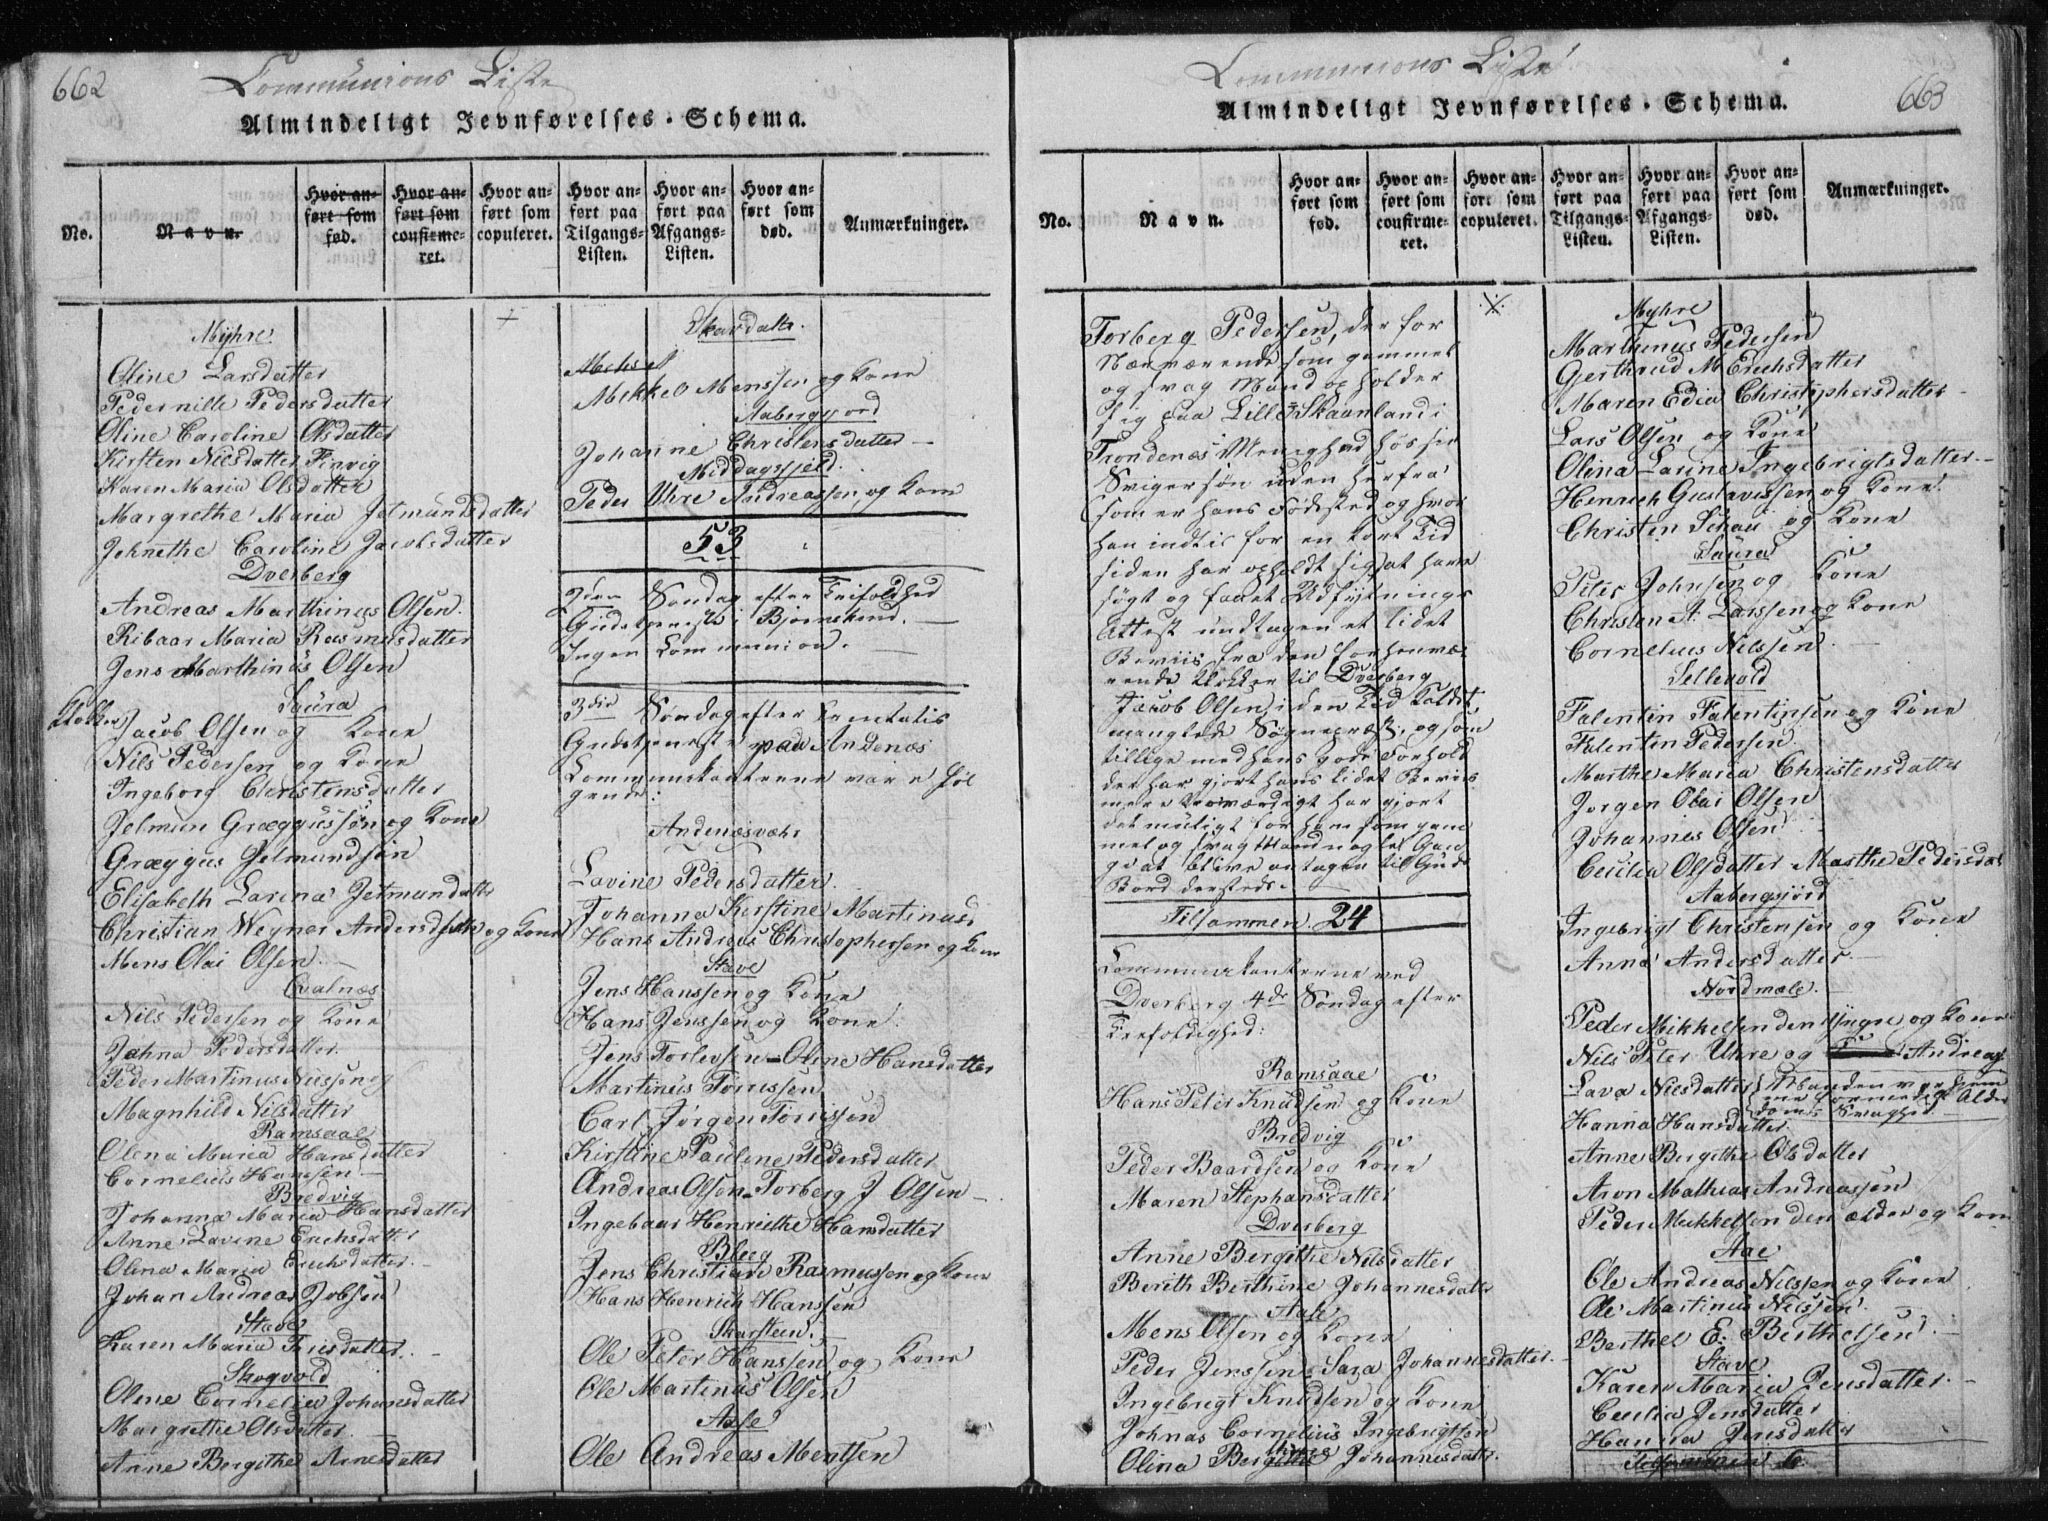 662
Communions Liste
Almindeligt Jevnførelses-Schema.
No.
Navn.
Hvor anført som fød.
Hvor anført som confirmeret.
Hvor anført som copuleret.
Hvor anført paa Tilgangs-Listen.
Hvor anført paa Afgangs-Listen.
Hvor anført som død.
Anmærkninger.
Myhre
Oline Larsdatter
Pedernille Pedersdatter
Oline Caroline Olsdatter
Kirsten Nilsdatter Finvig
Karen Maria Olsdatter
Margrethe Maria Jetmundsdatter
Johnethe Caroline Jacobsdatter
Dverberg
Andreas Marthinus Olsen
Ribaar Maria Rasmusdatter
Jens Marthinus Olsen
Saura
Klokker Jacob Olsen og Kone
Nils Pedersen og Kone
Ingeborg Christensdatter
Jetmun Græggussen og Kone
Græggus Jetmundsen
Elisabeth Larina Jetmundatter
Christian Weyner Andersen og Kone
Mens Olai Olsen
Qvalnæs
Nils Pedersen og Kone
Johna Pedersdatter
Peder Martinus Nilssen og
Magnhild Nilsdatter
Ramsaae
Olena Maria Hansdatter
Cornelius Hanssen
Bredvig
Johanna Maria Hansdatter
Anne Lavine Erichsdatter
Olina Maria Erichsdatter
Johan Andreas Jobsen
Stave
Karen Maria Friisdatter
Skogvold
Olene Cornelia Johansdatter
Margrethe Olsdatter
Anne Bergithe Arnesdatter
Skardalts.
Mikkel Menssen og Kone
Aabergjord
Johanne Christensdatter
Middagsfjeld
Peder Uhre Andreassen og Kone
53
Søndag efter Trefoldhed
Gudstjeneste i Bjørnskind.
Ingen Communion.
3die Søndag efter Trinitatis
Gudstjeneste paa Andenæs
Communikanterne vare føl
gende:
Andenæsvær
Lovine Pedersdatter
Johanna Kirstine Martinusd
Hans Andreas Christophersen og Kone
Stave
Jens Hanssen og Kone
Hans Jenssen og Kone
Jens Torlevsen - Oline Hansdatter
Martinus Torrissen
Carl Jørgen Torrissen
Kirstine Pauline Pedersdatter
Andreas Olsen - Torberg J Olsen
Ingebaar Henriethe Hansdatter
Bleeg
Jens Christian Rasmussen og Kone
Hans Henrich Hanssen
Skarsteen
Ole Peter Hanssen og Kone
Ole Martinus Olsen
Aase
Ole Andreas Mentsen
Communions Liste
663
Almindeligt Jevnførelses-Schema.
No.
Navn.
Hvor anført som fød.
Hvor anført som confirmeret.
Hvor anført som copuleret.
Hvor anført paa Tilgangs-Listen.
Hvor anført paa Afgangs-Listen.
Hvor anført som død.
Anmærkninger.
Torberg Pedersen, der for
Nærværende som gammel
og svag Mand opholder
sig paa Lille-Skaanland i
Trondenæs Menighed hos sin
Svigersøn uden herfra
som er hans Fødested og hvor
han indtil for en kort Tid
siden har opholdt sig at have
søgt og faaet Udflytnings
Attest undtagen et lidet
Beviis fra den forhenvæ
rende Klokker til Dverberg
Jacob Olsen, i den Tid Kaldet
manglede Sognepræst, og som
tillige med hans gode Forhold
der har gjort hans lidet Beviis
mere troværdigt har gjort
det muligt for ham som gam
mel og svag Mand nogle Gan
ge at blive antagen til Guds
Bord dersteds.
Tilsammen 24
Communikanterne ved
Dverberg 4de Søndag efter
Trefoldighed:
Ramsaae
Hans Peter Knudsen og Kone
Bredvig
Peder Baardsen og Kone
Maren Stephansdatter
Dverberg
Anne Bergithe Nilsdatter
Berith Berthine Johannesdatter
Aase
Mens Olsen og Kone
Peder Jenssen - Sara Johannesdatter
Ingebrigt Knudsen og Kone
Johnas Cornelius Ingebrigtsen
Olina Johannesdatter
Myhre
Marthinus Pedersen
Gjertrud M Erichsdatter
Maren Edia Christophersdatter
Lars Olsen og Kone
Olina Larina Ingebrigtsdatter
Henrich Gustavussen og Kone
Christen Schau og Kone
Saura
Peter Johnsen og Kone
Christen A. Larssen og Kone
Cornelius Nilssen
Sellevold
Falentin Falentinsen og Kone
Falentin Pedersen
Marthe Maria Christensdatter
Jørgen Olai Olsen
Johannes Olsen
Cecilia Olsdatter Marthe Pedersdat
Aabergjord
Ingebrigt Christensen og Kone
Anna Andersdatter
Nordmæle
Peder Mikkelsen den yngre og Kone
Nils Peter Uhre og Andreas
Lava Nilsdatter
Hanna Hansdatter
Anne Bergithe Olsdatter
Aron Mathias Andreassen
Peder Mikkelsen den ældre og Kone
Aae
Ole Andreas Nilssen og Kone
Ole Martinus Nilssen
Berthel E. Berthelsen
Stave
Karen Maria Jensdatter
Cecilia Jensdatter
Hanna Jensdatter
Tilsammen